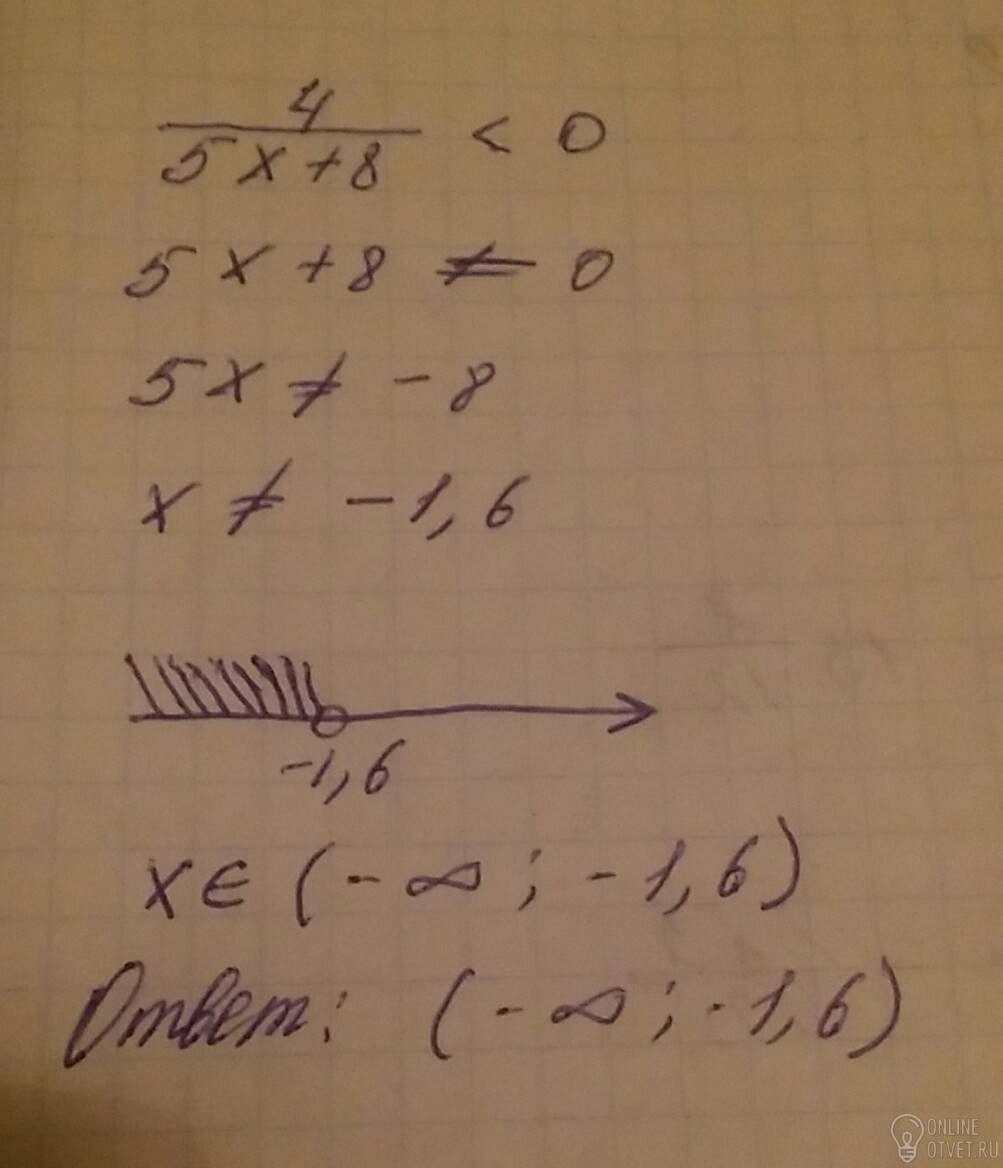 4
5x+8 < 0
5x+8 ≠ 0
5x ≠ -8
x ≠ -1,6
-1,6
x∈(-∞;-1,6)
Ответ: (-∞;-1,6)
ONLINE
OTVET.RU